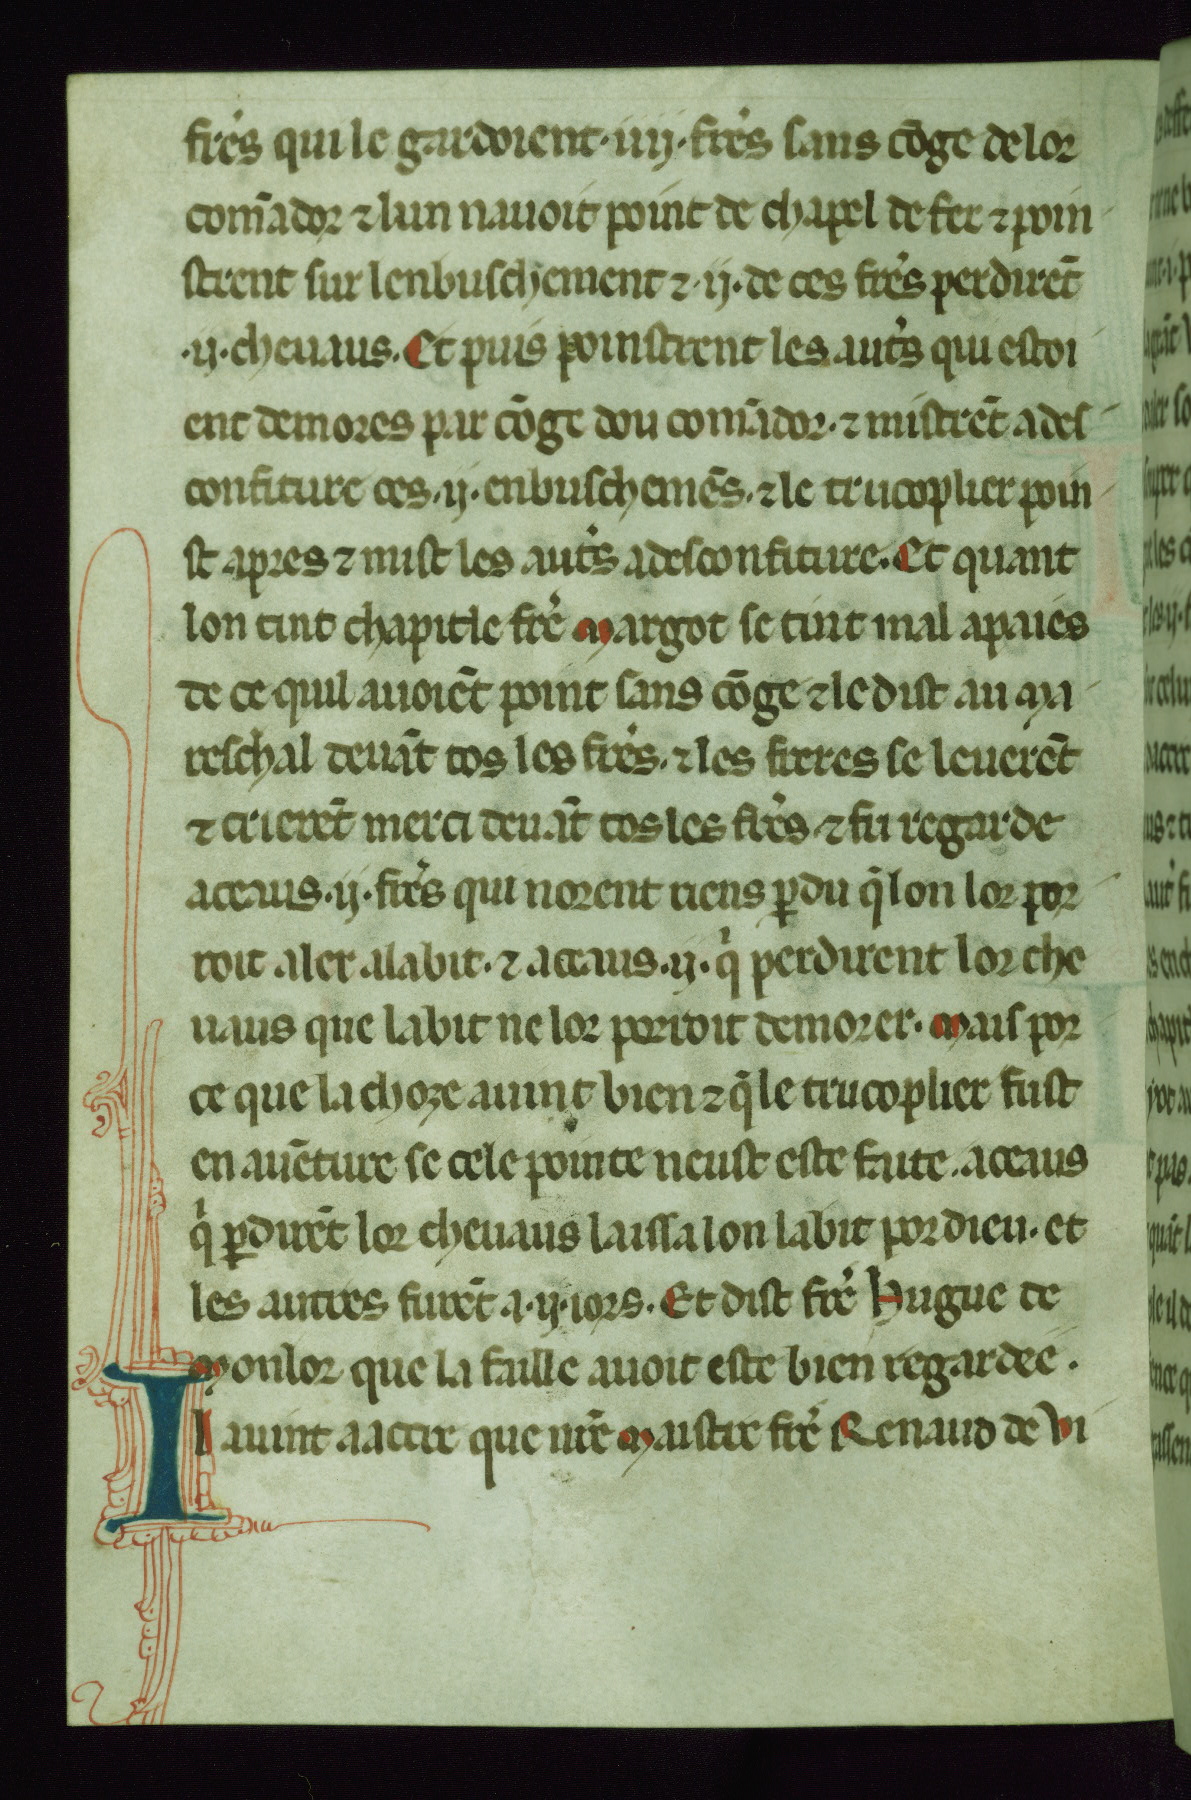 frẽs qui le gardoient·iiij·frẽs sans cõge de lor
comãdor ⁊ lun nauoit point de chapel de fer ⁊ poin
strent sur lenbuschement ⁊·ij·de ces frẽs perdirẽt
·ij·cheuaus. Et puis poinstrent les autˀs qui estoi
ent demores par cõge dou comãdor·⁊ mistrẽt a des
confiture ces·ij·enbuschemẽs·⁊ le trucoplier poin
st apres ⁊ mist les autˀs a desconfiture. Et quant
lon tint chapitle frẽ Margot se tint mal apaies
de ce quil auoiẽt point sans cõge ⁊ le dist au Ma
reschal deuãt tos les frẽs·⁊ les freres se leuerẽt
⁊ crierẽt merci deuãt tos les frẽs ⁊ fu regarde
a ceaus·ij·frẽs qui norent riens ꝑdu q̃ lon lor por
roit aler a labit·⁊ a ceaus·ij·qͥ perdirent lor che
uaus que labit ne lor porroit demorer. Mais por
ce que la choze auint bien ⁊ q̃ le trucoplier fust
en auẽture se cele pointe neust este faite. a ceaus
qͥ ꝑdirẽt lor cheuaus laissa lon labit por dieu. et
les autres furẽt a·ij·iors. Et dist frẽ Hugue de
Monlor que la faille auoit este bien regardee.
Il auint a accre que nrẽ Maistre frẽ Renaud de Vi